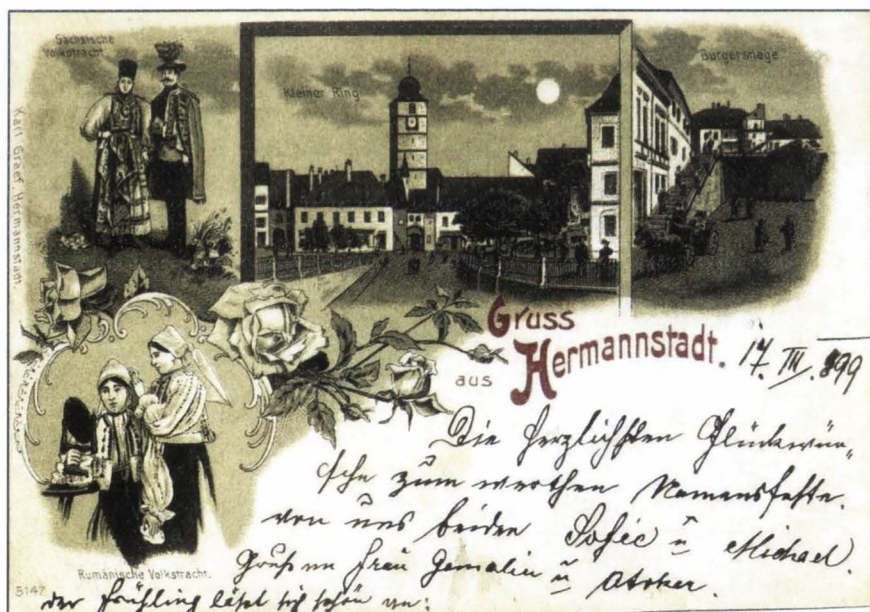 Sächsische
Volkstracht.
Kleiner Ring
Burgerstiege
Karl Graef, Hermannstadt.
Gruss
aus Hermannstadt. 17. III. 899
Die herzlichsten Glückwün-
sche zum werthen Namensfeste.
von uns beiden Sofie u Michael.
Gruß an Frau Gemalin u
Rumänische Volkstracht.
5147
der Frühling läßt sich schön an: